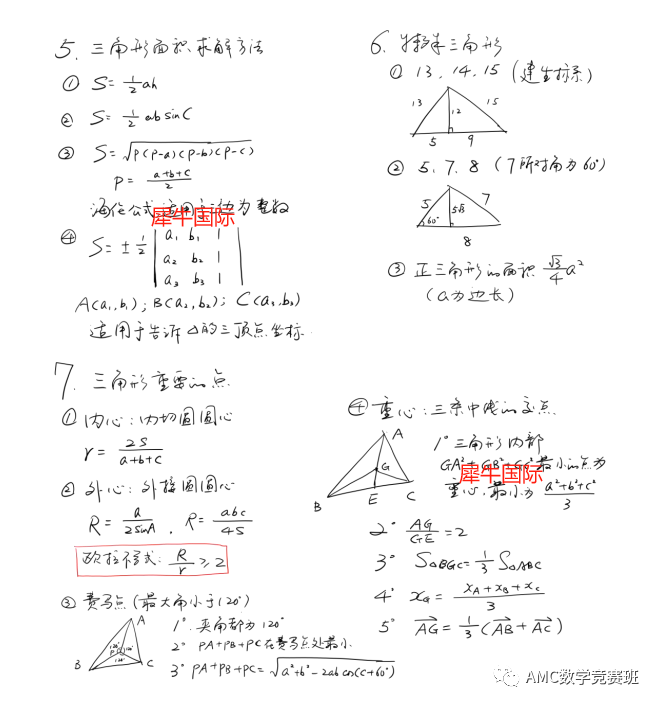 5. 三角形面积求解方法
① S= 1/2 ah
② S= 1/2 ab sinC
③ S=√P(P-a)(P-b)(P-c)
P= a+b+c/2
海伦公式适用三边为整数
犀牛国际
④ S=± 1/2 | a₁ b₁ 1 |
a₂ b₂ 1
a₃ b₃ 1
A(a₁,b₁); B(a₂,b₂); C(a₃,b₃)
适用于告诉△的三顶点坐标
6. 特殊三角形
① 13, 14, 15 (建坐标系)
13 12 15
5 9
② 5, 7, 8 (7所对角为60°)
5 7
60° 5√3
8
③ 正三角形的面积 √3/4 a²
(a为边长)
7. 三角形重要的点
① 内心: 内切圆圆心
r= 2S/a+b+c
② 外心: 外接圆圆心
R= a/2sinA , R= abc/4S
欧拉不等式: R/r ≥2
③ 费马点 (最大角小于120°)
A
P 120° 120°
120°
B C
1° 夹角都为120°
2° PA+PB+PC在费马点处最小
3° PA+PB+PC=√a²+b²-2ab cos(C+60°)
④ 重心: 三条中线的交点
A
G
B E C
1° 三角形内部
GA²+GB²+GC²最小的点为
犀牛国际
重心, 最小为 a²+b²+c²/3
2° AG/GE =2
3° S△BGC= 1/3 S△ABC
4° x_G= x_A+x_B+x_C/3
5° AG= 1/3 (AB+AC)
AMC数学竞赛班